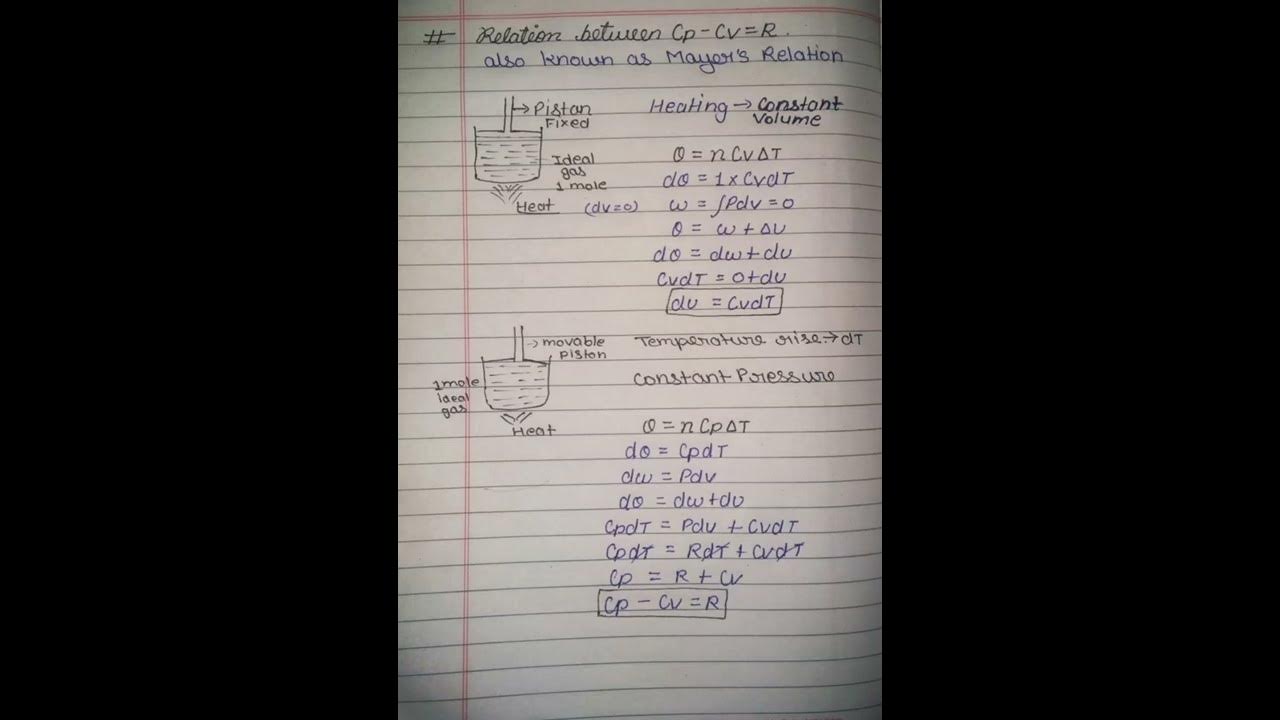 # Relation between Cp - Cv = R.
also known as Mayer's Relation
→ Pistan
Fixed
Ideal
gas
1 mole
Heat
Heating → Constant
Volume
Q = n Cv ΔT
dQ = 1 x CvdT
(dv=0) w = ∫Pdv = 0
Q = w + ΔU
dQ = dw + du
CvdT = 0 + du
du = CvdT
→ movable
piston
1 mole
ideal
gas
Heat
Temperature rise → dT
Constant Pressure
Q = n Cp ΔT
dQ = CpdT
dw = Pdv
dQ = dw + du
CpdT = Pdv + CvdT
CpdT = RdT + CvdT
Cp = R + Cv
Cp - Cv = R